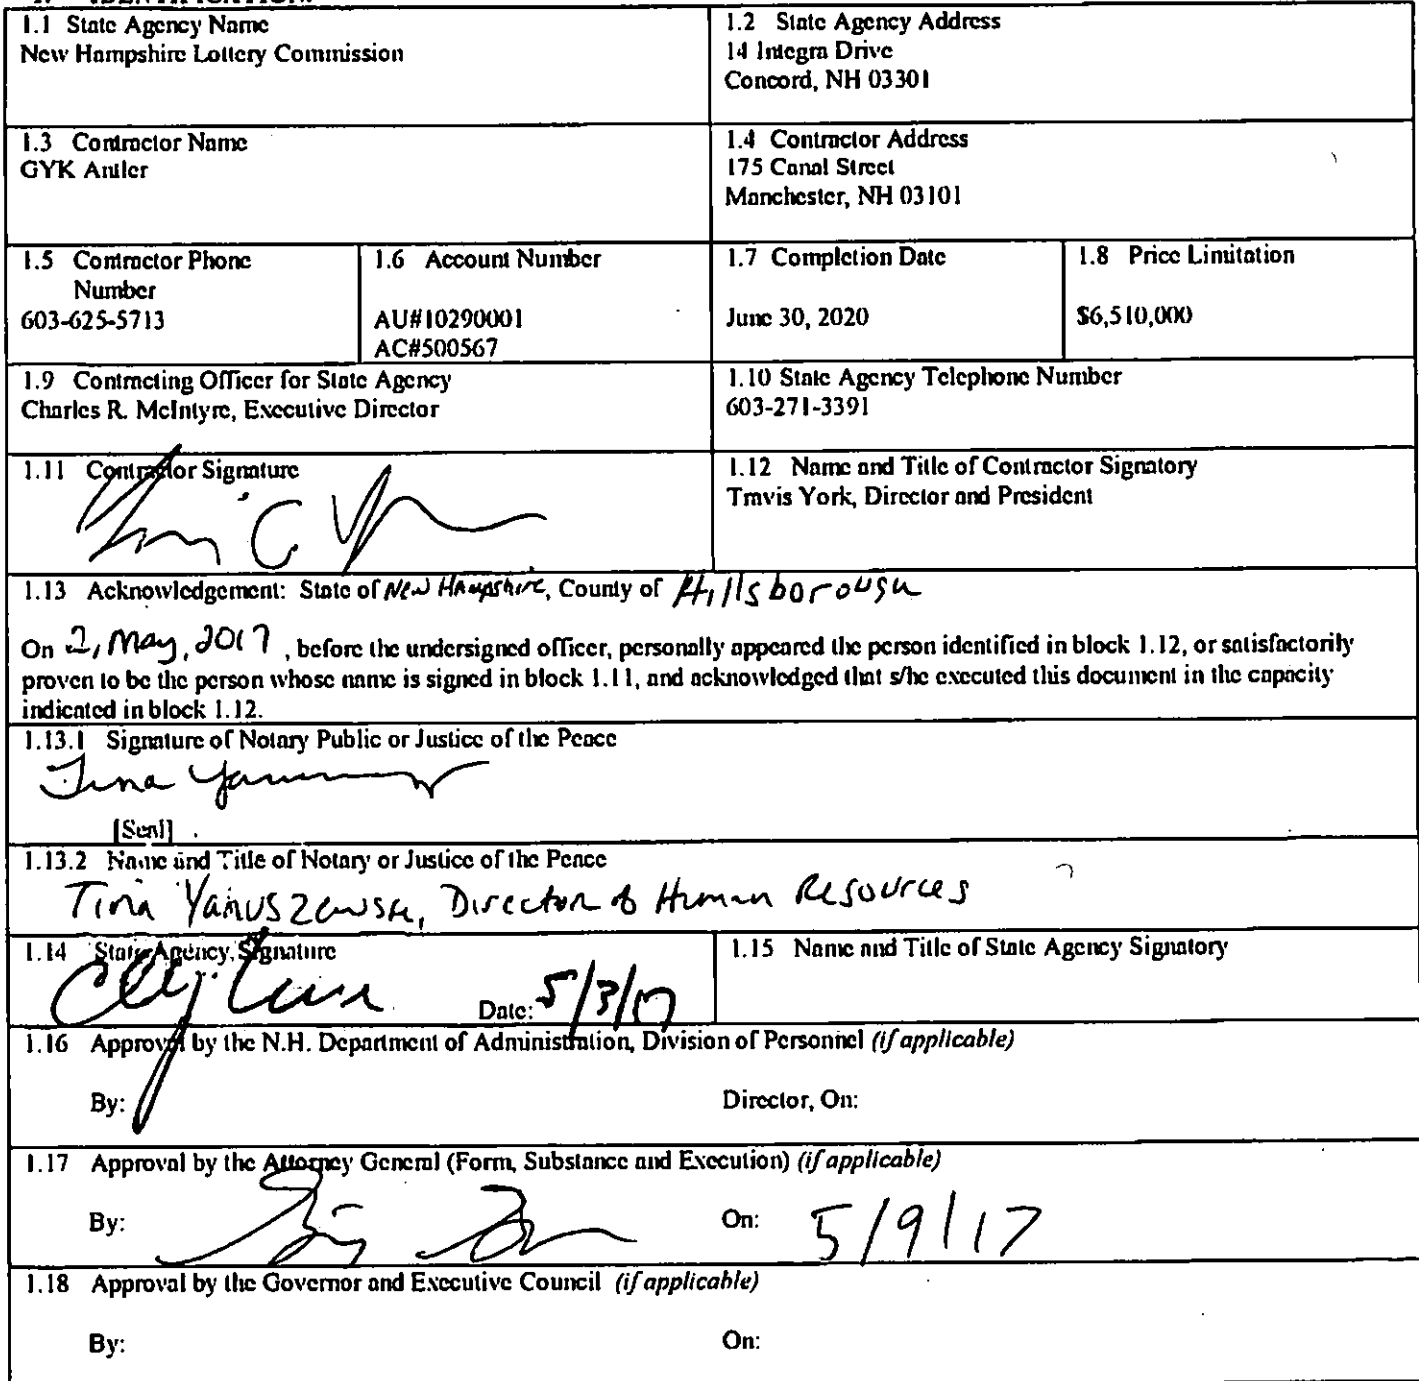 1.1 State Agency Name
New Hampshire Lottery Commission
1.2 State Agency Address
14 Integra Drive
Concord, NH 03301
1.3 Contractor Name
GYK Antler
1.4 Contractor Address
175 Canal Street
Manchester, NH 03101
1.5 Contractor Phone
Number
603-625-5713
1.6 Account Number
AU#10290001
AC#500567
1.7 Completion Date
June 30, 2020
1.8 Price Limitation
$6,510,000
1.9 Contracting Officer for State Agency
Charles R. McIntyre, Executive Director
1.10 State Agency Telephone Number
603-271-3391
1.11 Contractor Signature
1.12 Name and Title of Contractor Signatory
Travis York, Director and President
1.13 Acknowledgement: State of New Hampshire, County of Hillsborough
On 2, May, 2017, before the undersigned officer, personally appeared the person identified in block 1.12, or satisfactorily
proven to be the person whose name is signed in block 1.11, and acknowledged that s/he executed this document in the capacity
indicated in block 1.12.
1.13.1 Signature of Notary Public or Justice of the Peace
Tina
[Seal]
1.13.2 Name and Title of Notary or Justice of the Peace
Tina Yanuszewski, Director of Human Resources
1.14 State Agency Signature
Date: 5/3/17
1.15 Name and Title of State Agency Signatory
1.16 Approval by the N.H. Department of Administration, Division of Personnel (if applicable)
By:
Director, On:
1.17 Approval by the Attorney General (Form, Substance and Execution) (if applicable)
By:
On: 5/9/17
1.18 Approval by the Governor and Executive Council (if applicable)
By:
On: